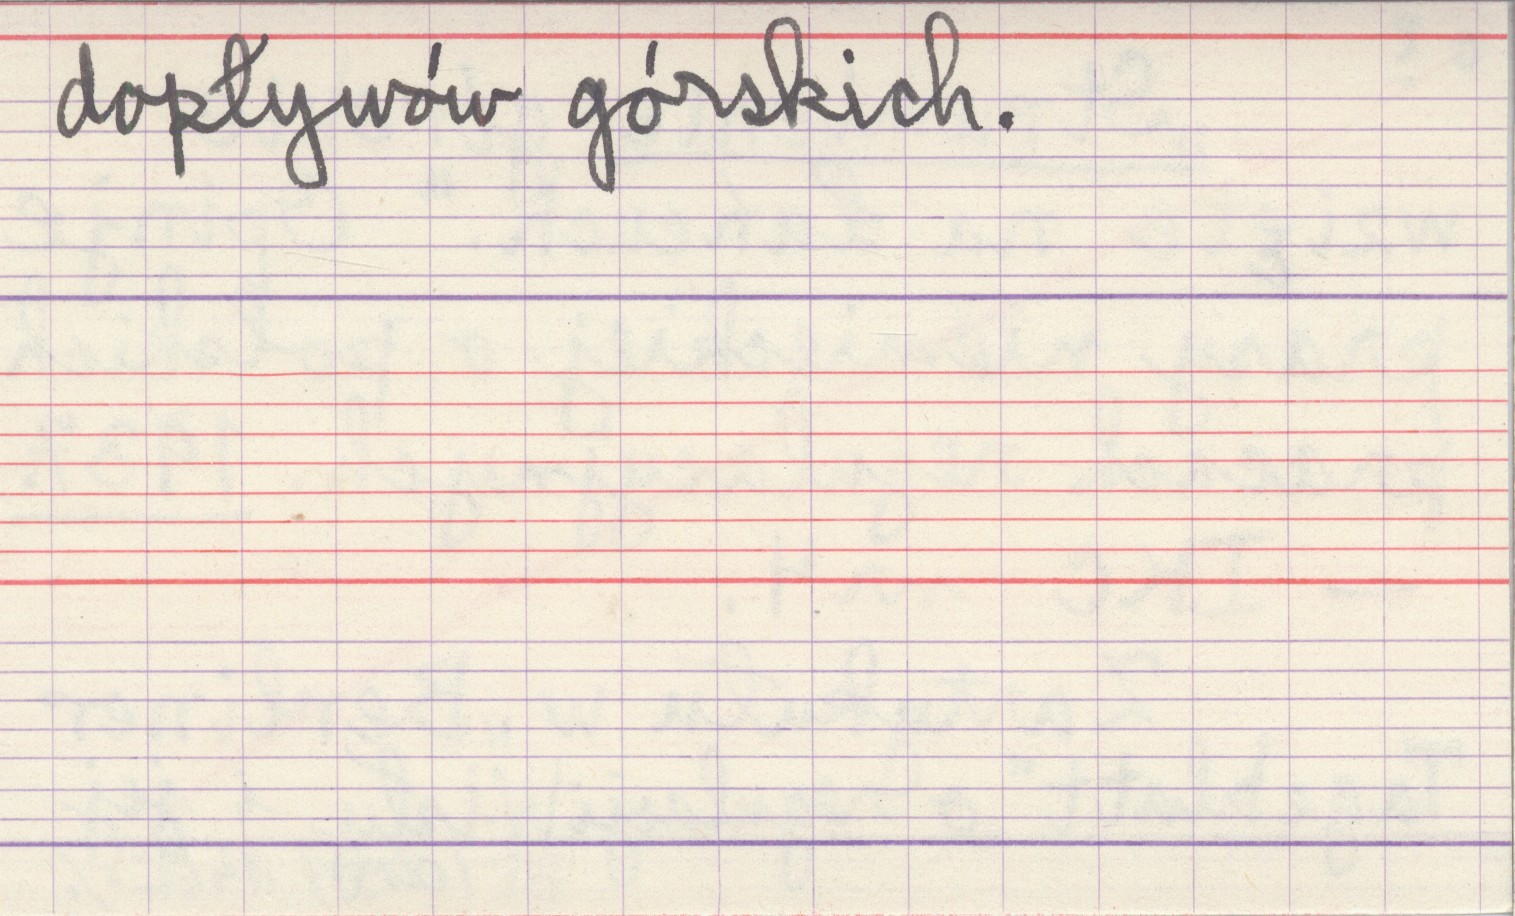 dopływów górskich.